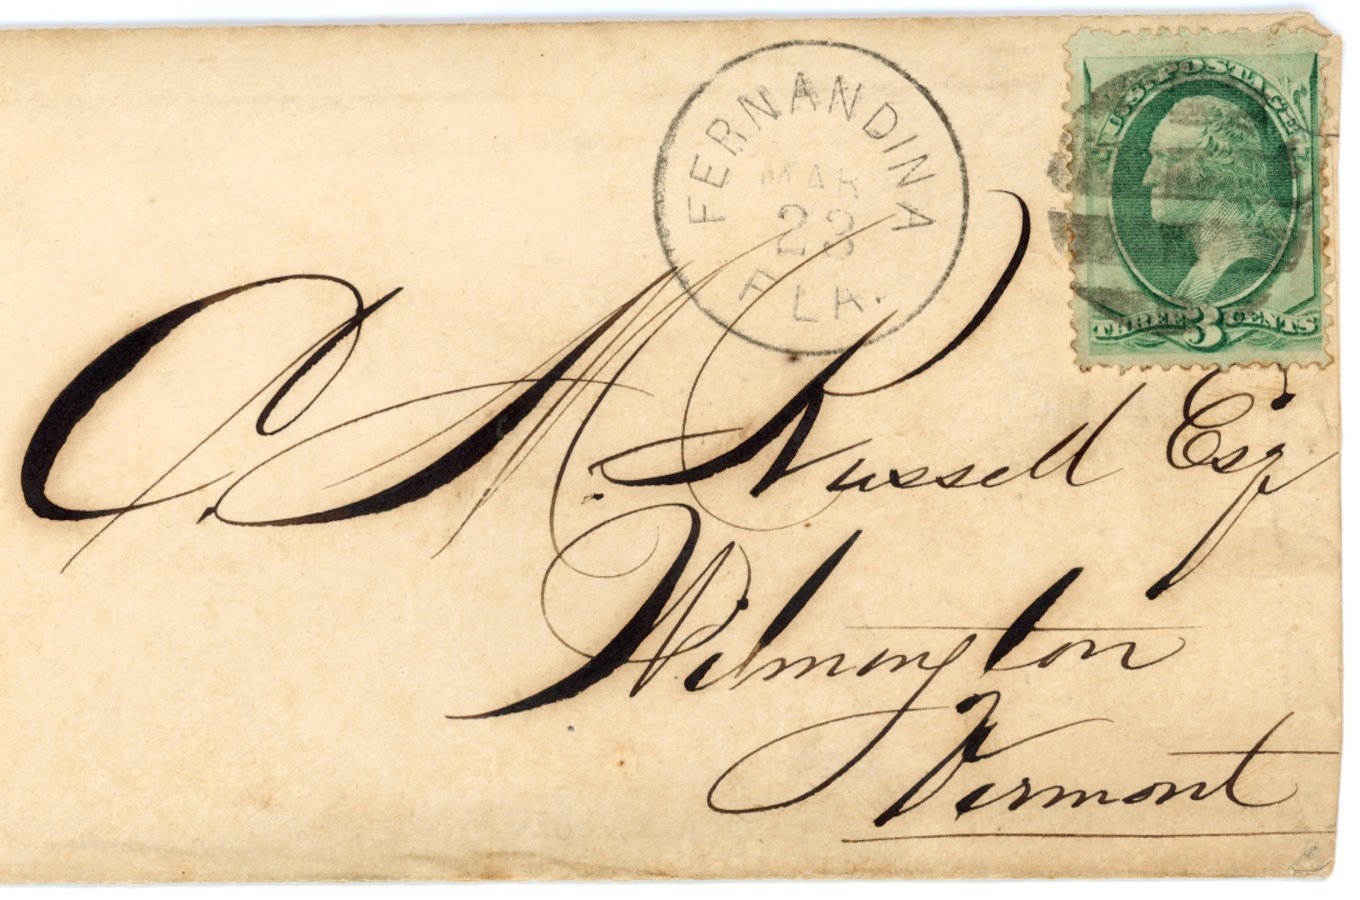 FERNANDINA
MAR
23
FLA.
U.S. POSTAGE
THREE 3 CENTS
C. M. Russell Esq
Wilmington
Vermont